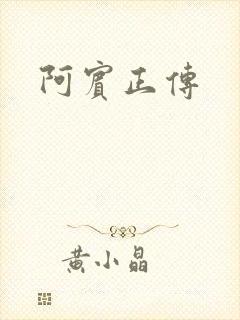 阿賓正傳
黃小晶